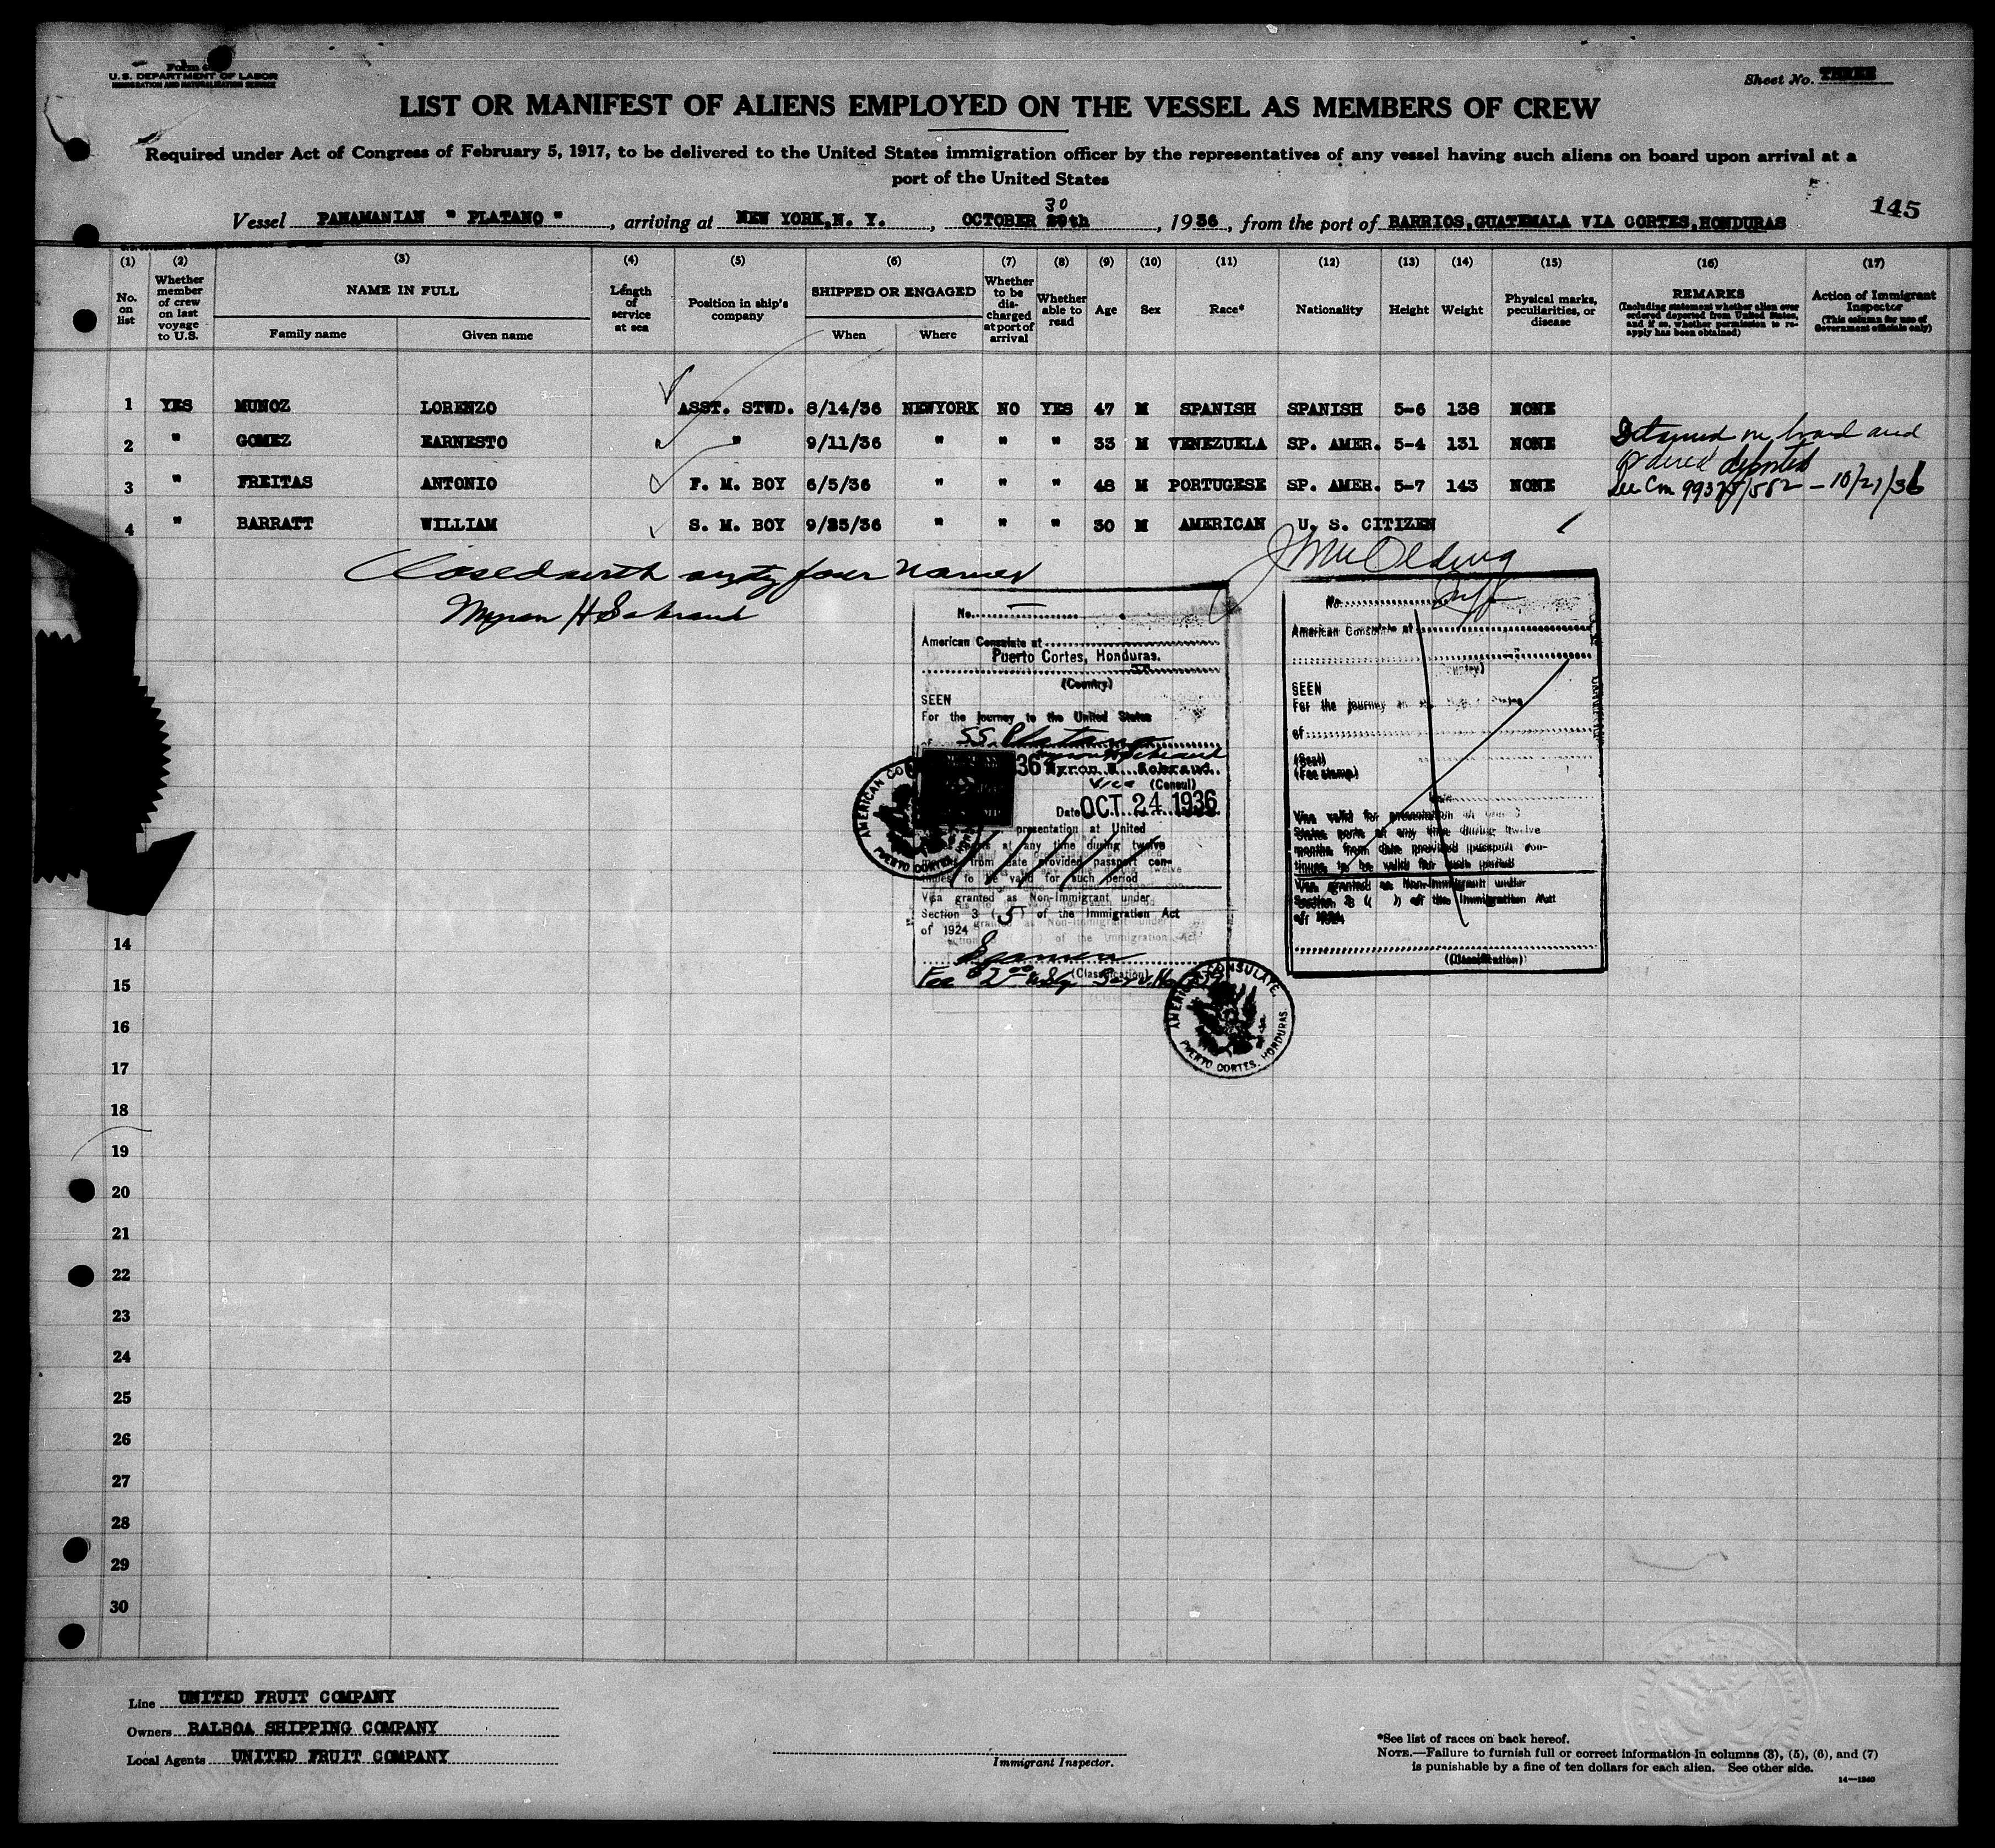 U.S. DEPARTMENT OF LABOR
IMMIGRATION AND NATURALIZATION SERVICE
Sheet No. THREE
LIST OR MANIFEST OF ALIENS EMPLOYED ON THE VESSEL AS MEMBERS OF CREW
Required under Act of Congress of February 5, 1917, to be delivered to the United States immigration officer by the representatives of any vessel having such aliens on board upon arrival at a
port of the United States
145
30
Vessel PANAMANIAN " PLATANO ", arriving at NEW YORK,N. Y., OCTOBER 29th, 1936, from the port of BARRIOS,GUATEMALA VIA CORTES,HONDURAS
(1) No. on list
(2) Whether member of crew on last voyage to U.S.
(3) NAME IN FULL
Family name
Given name
(4) Length of service at sea
(5) Position in ship's company
(6) SHIPPED OR ENGAGED
When
Where
(7) Whether to be discharged at port of arrival
(8) Whether able to read
(9) Age
(10) Sex
(11) Race*
(12) Nationality
(13) Height
(14) Weight
(15) Physical marks, peculiarities, or disease
(16) REMARKS
(Including statement whether alien ever ordered deported from United States, and if so, whether permission to re-apply has been obtained)
(17) Action of Immigrant Inspector
(This column for use of Government officials only)
1 YES MUNOZ LORENZO ASST. STWD. 8/14/36 NEWYORK NO YES 47 M SPANISH SPANISH 5-6 138 NONE
2 " GOMEZ EARNESTO " 9/11/36 " " " 33 M VENEZUELA SP. AMER. 5-4 131 NONE
Detained on board and
ordered deported
3 " FREITAS ANTONIO F. M. BOY 6/5/36 " " " 48 M PORTUGESE SP. AMER. 5-7 143 NONE
- 10/21/36
4 " BARRATT WILLIAM S. M. BOY 9/25/36 " " " 30 M AMERICAN U. S. CITIZEN
Closed with sixty four names
No.
American Consulate at
Puerto Cortes, Honduras.
(Country)
SEEN
For the journey to the United States
of SS. Platano
36
Vice (Consul)
Date OCT 24 1936
presentation at United
at any time during twelve
months from date provided passport con-
tinues to be valid for such period
Visa granted as Non-Immigrant under
Section 3 (5) of the Immigration Act
of 1924
Seamen
(Classification)
Fee $2.00
AMERICAN CONSULATE
PUERTO CORTES, HONDURAS.
No.
American Consulate at
SEEN
For the journey
of
(Seal)
(Fee stamp)
Visa valid for presentation at
States ports at any time during twelve
months from date provided passport con-
tinues to be valid for such period
Visa granted as Non-Immigrant under
Section 3 ( ) of the Immigration Act
of 1924
(Classification)
AMERICAN CONSULATE.
PUERTO CORTES, HONDURAS.
14
15
16
17
18
19
20
21
22
23
24
25
26
27
28
29
30
Line UNITED FRUIT COMPANY
Owners BALBOA SHIPPING COMPANY
Local Agents UNITED FRUIT COMPANY
Immigrant Inspector.
*See list of races on back hereof.
NOTE.—Failure to furnish full or correct information in columns (3), (5), (6), and (7)
is punishable by a fine of ten dollars for each alien. See other side.